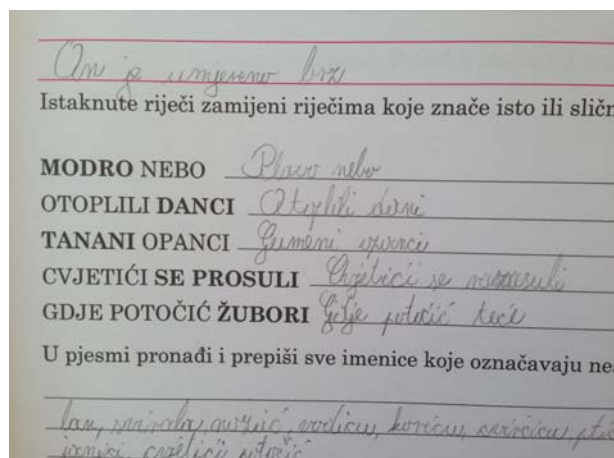 On je umjereno brz
Istaknute riječi zamijeni riječima koje znače isto ili sličn
MODRO NEBO Plavo nebo
OTOPLILI DANCI Otoplili dani
TANANI OPANCI Gumeni
CVJETIĆI SE PROSULI Cvjetići se
GDJE POTOČIĆ ŽUBORI Gdje potočić teče
U pjesmi pronađi i prepiši sve imenice koje označavaju ne
cvjetići potočić